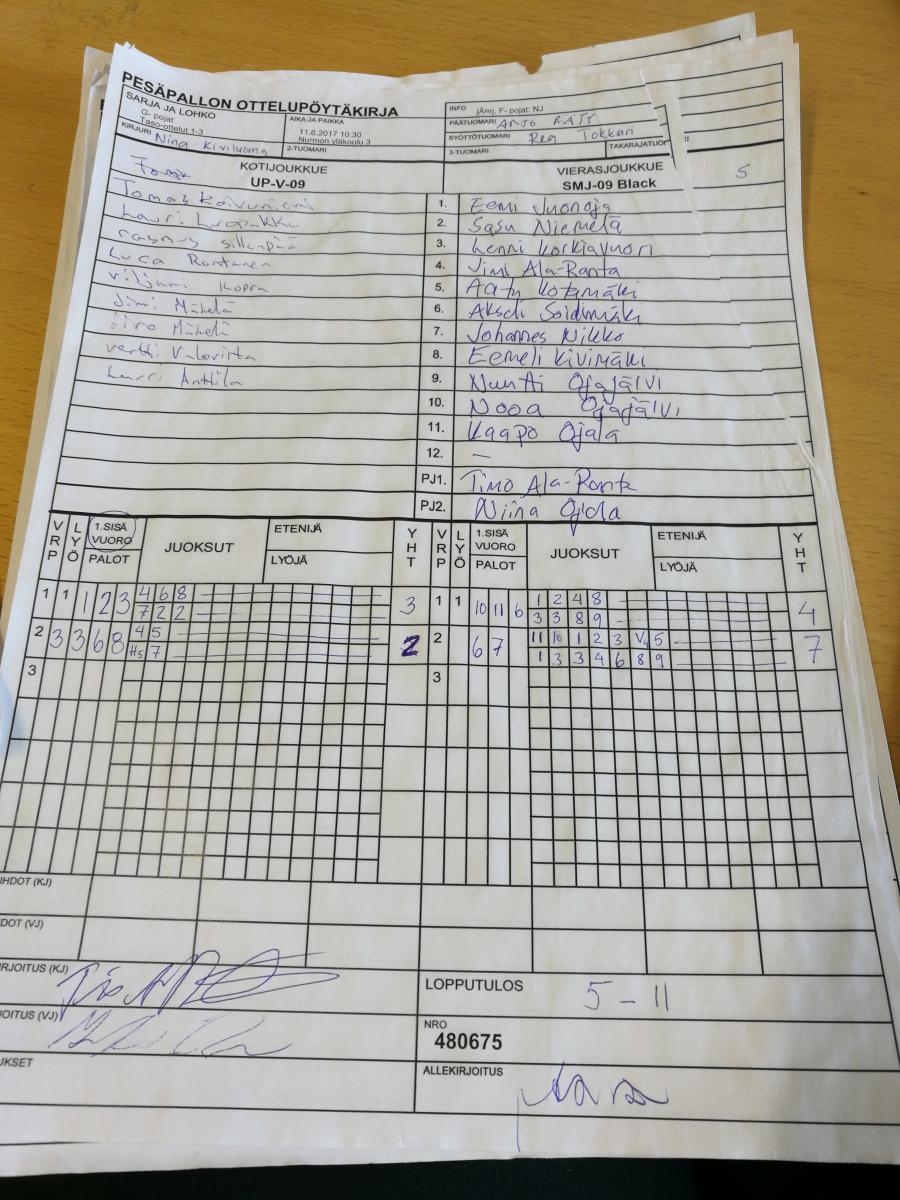 PESÄPALLON OTTELUPÖYTÄKIRJA
SARJA JA LOHKO
G- pojat
Taso-ottelut 1-3
AIKA JA PAIKKA
11.6.2017 10:30
Nurmon yläkoulu 3
INFO jÄrrj. F- pojat: NJ
PÄÄTUOMARI ARJO RÄTY
SYÖTTÖTUOMARI Rea Tokkari
KIRJURI Nina Kiviluoma
2-TUOMARI
3-TUOMARI
TAKARAJATUOM
KOTIJOUKKUE
UP-V-09
VIERASJOUKKUE
SMJ-09 Black
5
Tomas Koivuniemi
1. Eemi Juonoja
Lauri
2. Sasu Niemelä
rasmus sillanpää
3. Lenni Korkiavuori
Luca Rantanen
4. Jimi Ala-Ranta
viljami Kopra
5. Aatu Kotamäki
Jimi Mäkelä
6. Akseli Soidinmäki
Mäkelä
7. Johannes Nikko
vertti Valovirta
8. Eemeli Kivimäki
Lauri Anttila
9. Ojajälvi
10. Nooa Ojajälvi
11. Kaapo Ojala
12. —
PJ1. Timo Ala-Ranta
PJ2. Niina Ojala
VRP LYÖ 1.SISÄ VUORO PALOT JUOKSUT ETENIJÄ LYÖJÄ YHT VRP LYÖ 1.SISÄ VUORO PALOT JUOKSUT ETENIJÄ LYÖJÄ YHT
1 1 1 2 3 4 6 8 3 1 1 10 11 6 1 2 4 8 4
7 2 2 3 3 8 9
2 3 3 6 8 4 5 2 2 6 7 11 10 1 2 3 V4 5 7
H5 7 1 3 3 4 6 8 9
3 3
IHDOT (KJ)
DOT (VJ)
RJOITUS (KJ)
LOPPUTULOS 5 - 11
OITUS (VJ)
NRO
480675
UKSET
ALLEKIRJOITUS